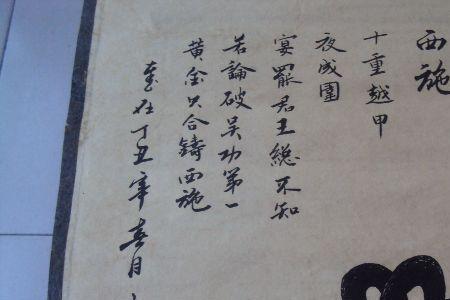 西施
十重越甲
夜成圍
宴罷君王總不知
若論破吳功第一
黄金只合鑄西施
在丁丑 月